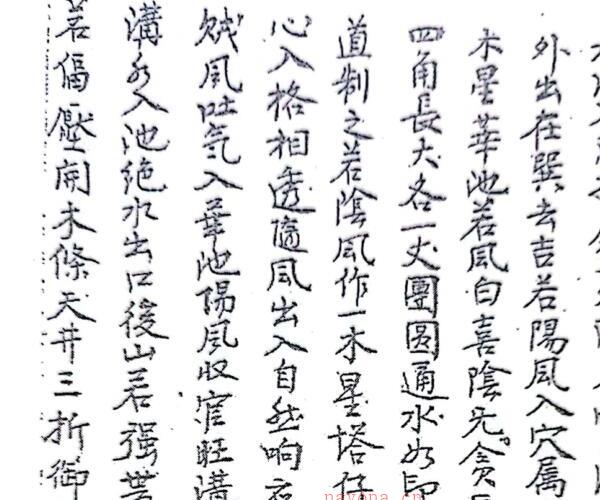 外出在巽去吉若陽風入穴属
木星華池若風白喜陰先貪
四角長大各一丈團圓通水如印
道制之若陰風作一木星塔仔
心入格相透隨風出入自然响
贼風吐气入華池陽風收官旺溝
溝水入池绝水出口後山若强
若偪壓開木條天井三折御